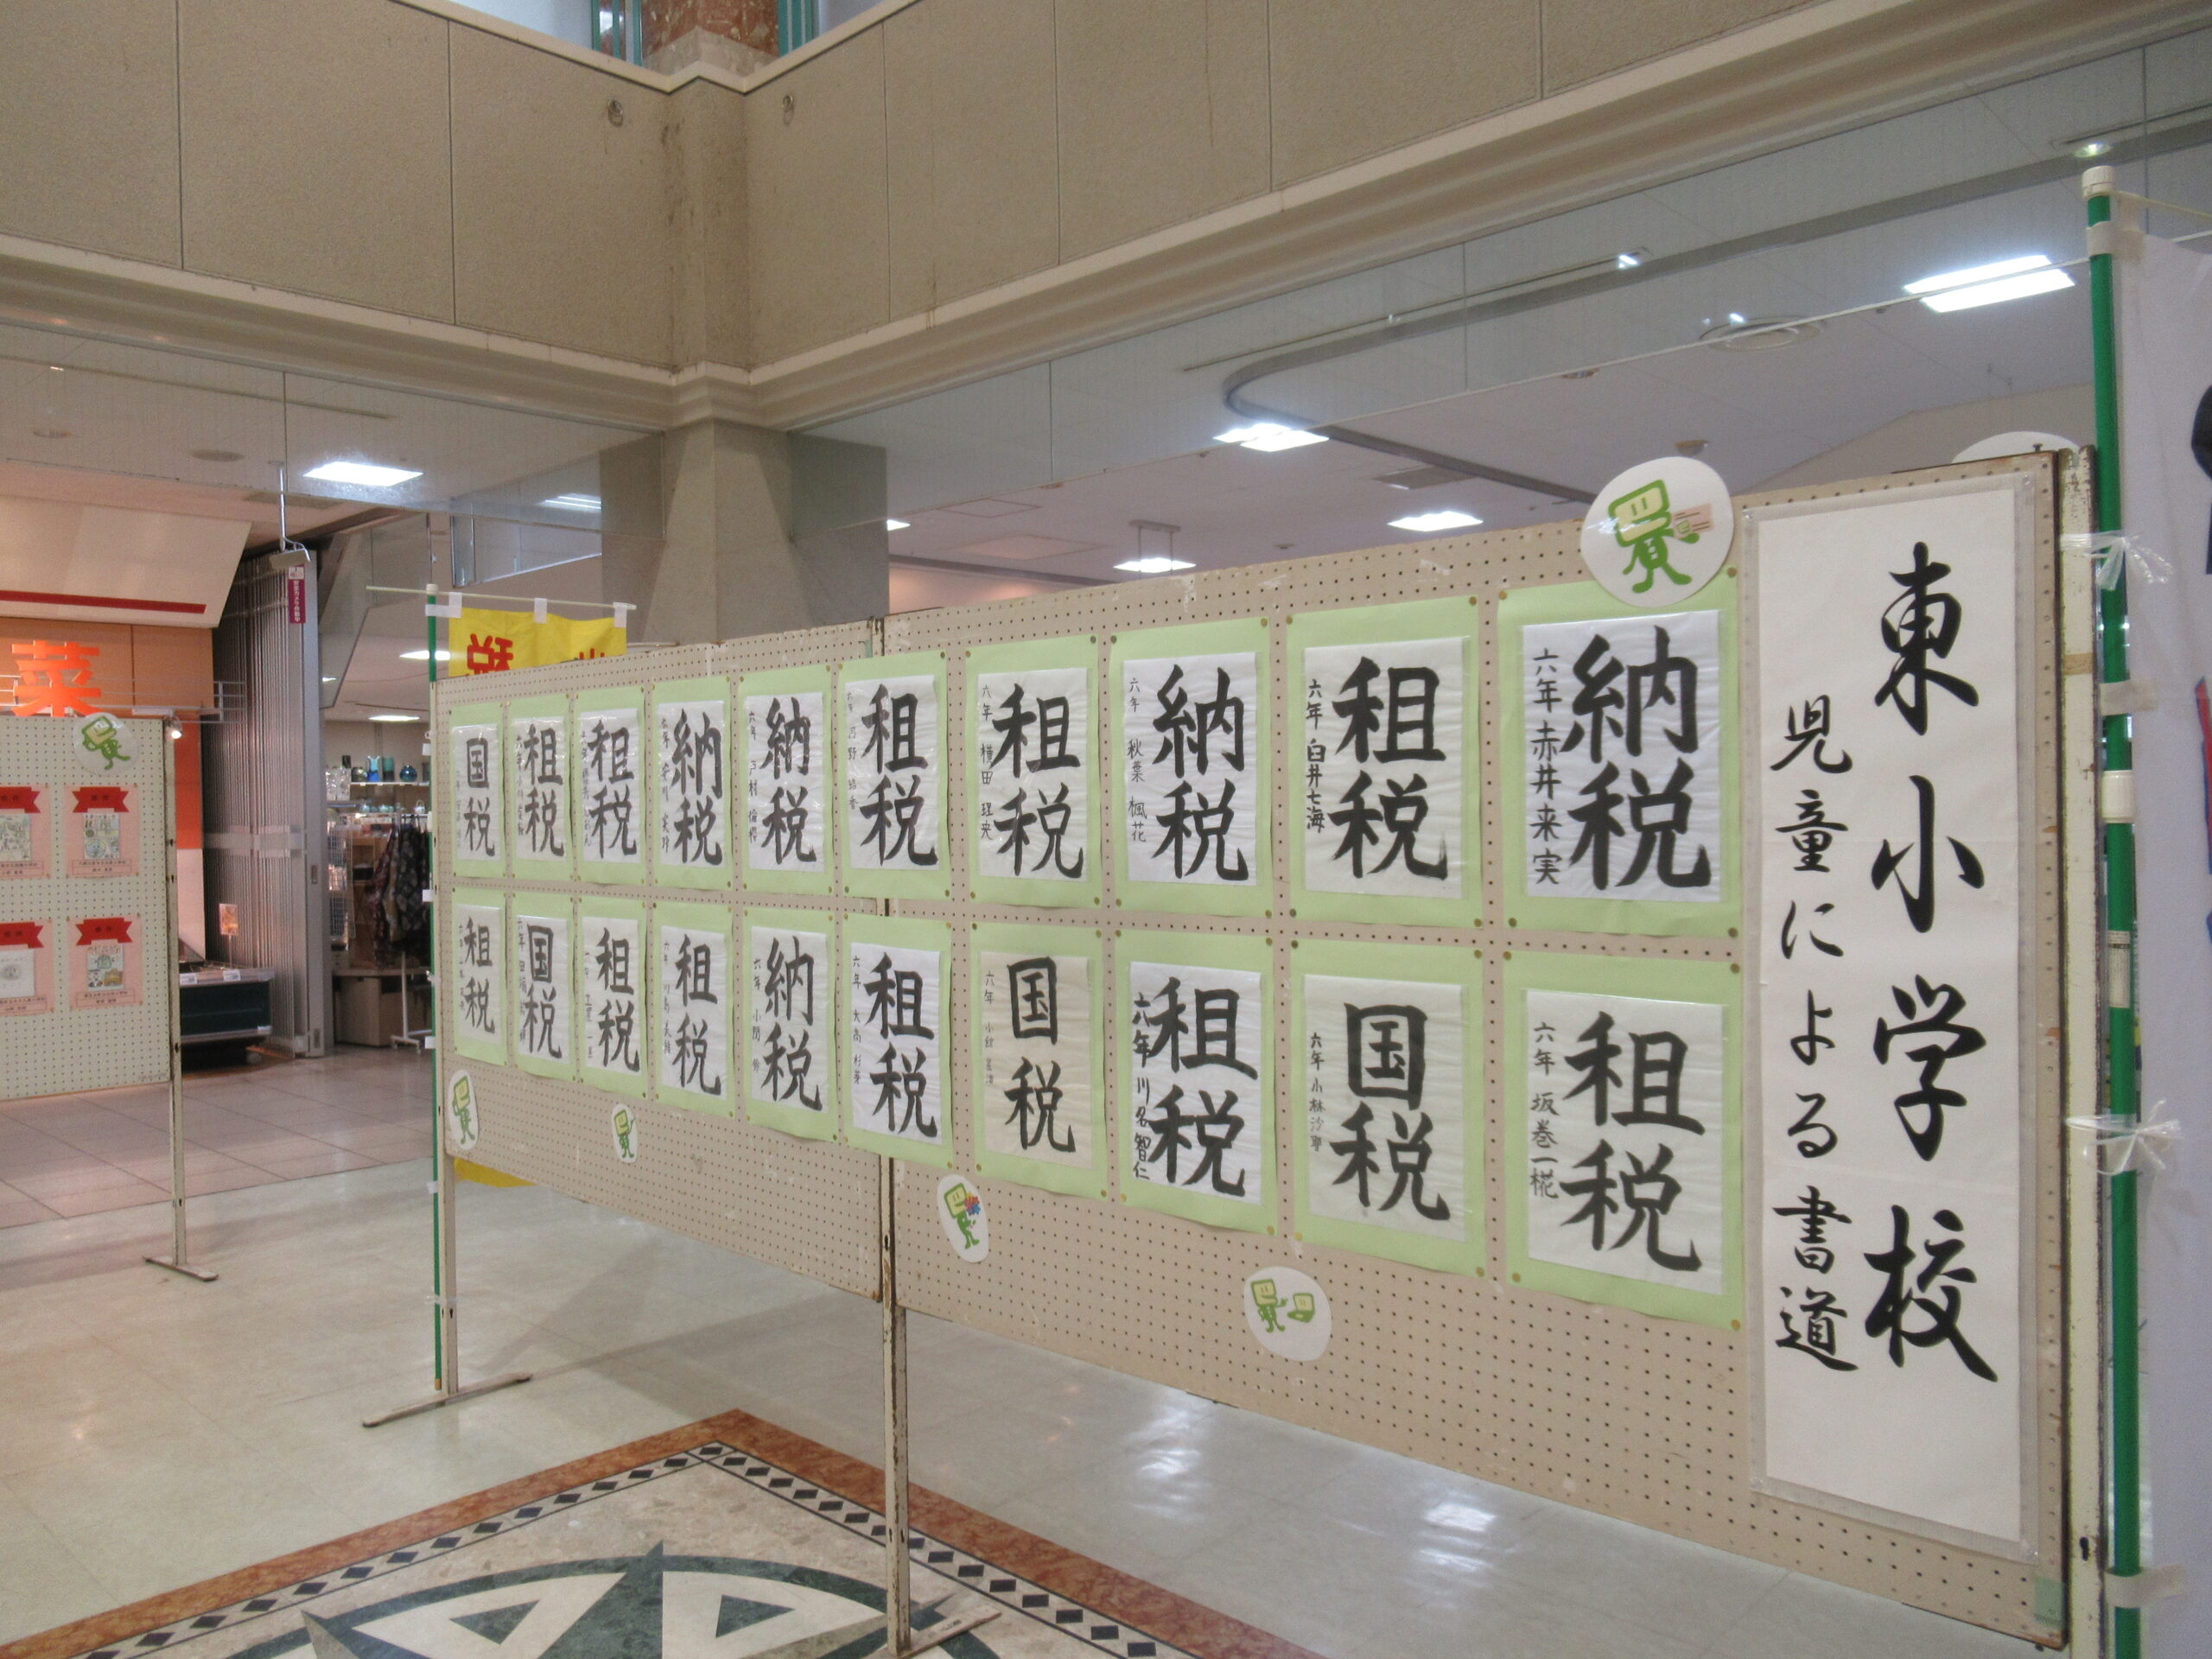 東小学校
児童による書道
納税
六年 赤井来実
租税
六年 臼井七海
納税
六年 秋葉 楓花
租税
六年 横田 理央
租税
納税
納税
租税
租税
国税
租税
六年 坂巻一椛
国税
六年 小林沙耶
租税
六年 川名智仁
国税
六年
租税
六年
納税
六年 小関
租税
租税
国税
租税
税
菜